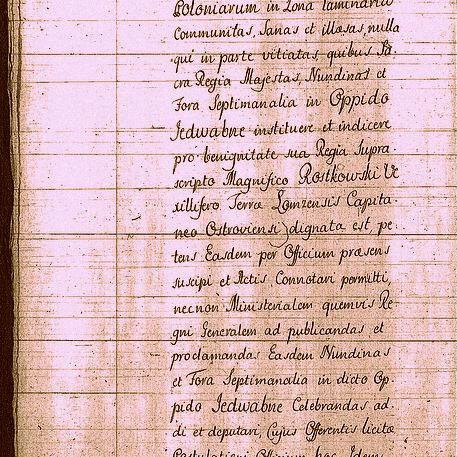 Poloniarum in Zona laminario
Communitas, Sanas et illæsas, nulla
qui in parte vitiatas, quibus Sa
cra Regia Majestas, Nundinas et
Fora Septimanalia in Oppido
Jedwabne instituere et indicere
pro benignitate sua Regia Supra
scripto Magnifico Rostkowski Ve
xillifero Terræ Lomzensis Capita
neo Ostroviensi dignata est, pe
tens Easdem per Officium præsens
suscipi et Actis Connotari permitti,
necnon Ministerialem quemvis Re
gni Generalem ad publicandas et
proclamandas Easdem Nundinas
et Fora Septimanalia in dicto Op
pido Jedwabne Celebrandas ad
di et deputari, Cujus Offerentis licitæ
Postulationi Officium hoc Idem